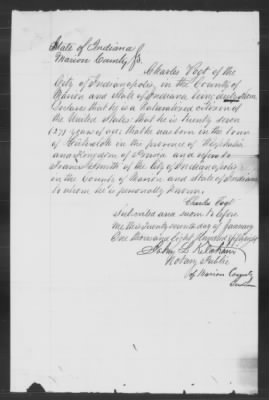 State of Indiana }
Marion County } SS.
Charles Vogt of the
City of Indianapolis, in the County of
Marion and State of Indiana being duly sworn
Declare that he is a Naturalized citizen of
the United States: that he is twenty seven
(27) years of age: that he was born in the town
of in the province of Westphalia
and Kingdom of Prussia and refers to
Francis Smith of the City of Indianapolis
in the County of Marion and State of Indiana
to whom he is personally known.
Charles Vogt
Subscribed and sworn to before
me this twenty seventh day of January
One thousand Eight Hundred
John L.
Notary Public
of Marion County
Indiana